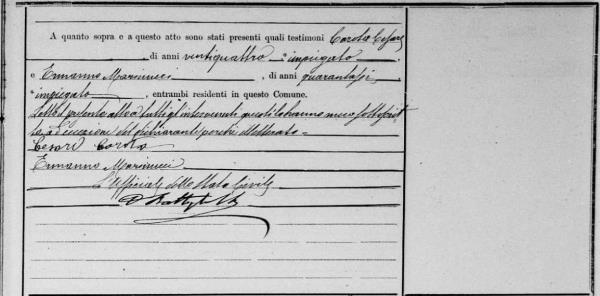 A quanto sopra e a questo atto sono stati presenti quali testimoni Carota Cesare
, di anni ventiquattro impiegato
e Ermanno Marinucci, di anni quarantasei
impiegato, entrambi residenti in questo Comune.
Letto il presente atto a tutti gl'intervenuti questi lo hanno meco sottoscrit
to, ad eccezione del dichiarante perché illetterato
Cesare Carota
Ermanno Marinucci
L'Ufficiale dello Stato Civile